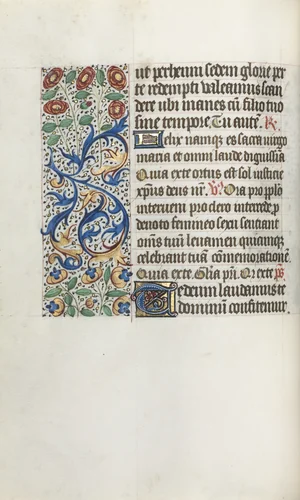 ut per heuim sedem glorie per
te redempti valeamus scan
dere ubi manes cu filio tuo
sine tempore Tu aute. R
Felix namqe es sacra virgo
maria et omni laude dignissia
Quia exte ortus est sol iusticie
xpus deus nr. V Ora pro plo
interueni pro clero intercede p
deuoto femineo sexu sentiant
oms tuu leuamen quicumqe
celebrant tua comemoratione
Quia exte. Glia pri Or exte ps
Te deum laudamus te
dominu confitemur.